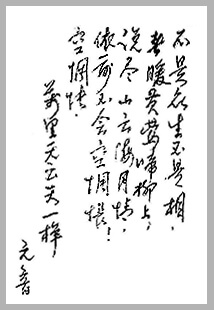 不是众生不是相，
春暖黄莺啼柳上，
说尽山云海月情，
依前不会空惆怅！
空惆怅，
万里无云天一样，
元音